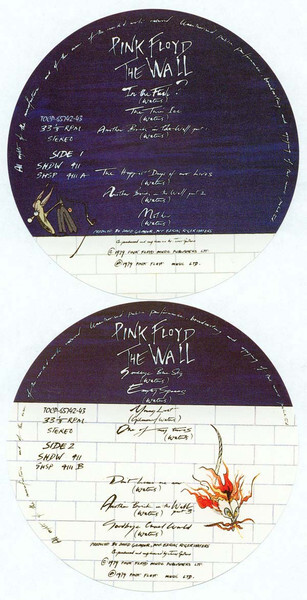 All rights of the manufacturer and of the owner of the recorded work reserved. Unauthorised public performance broadcasting and copying of this record
PINK FLOYD
THE WALL
In the Flesh ?
(Waters)
The Thin Ice
(Waters)
Another Brick in the Wall part 1
(Waters)
TOCP-65742-43
33⅓ RPM
STEREO
SIDE 1
SHDW 411
SHSP 4111 A
The Happiest Days of our Lives
(Waters)
Another Brick in the Wall part 2
(Waters)
Mother
(Waters)
PRODUCED BY
Ⓟ 1979 PINK FLOYD MUSIC PUBLISHERS LTD.
© 1979 PINK FLOYD MUSIC LTD.
Unauthorised public performance broadcasting and copying of
PINK FLOYD
THE WALL
Goodbye Blue Sky
(Waters)
Empty Spaces
(Waters)
TOCP-65742-43
33⅓ RPM
STEREO
SIDE 2
SHDW 411
SHSP 4111 B
Young Lust
(Gilmour/Waters)
One of my turns
(Waters)
Don't leave me now
(Waters)
Another Brick in the Wall part 3
(Waters)
Goodbye Cruel World
(Waters)
PRODUCED BY
Ⓟ 1979 PINK FLOYD MUSIC PUBLISHERS LTD.
© 1979 PINK FLOYD MUSIC LTD.